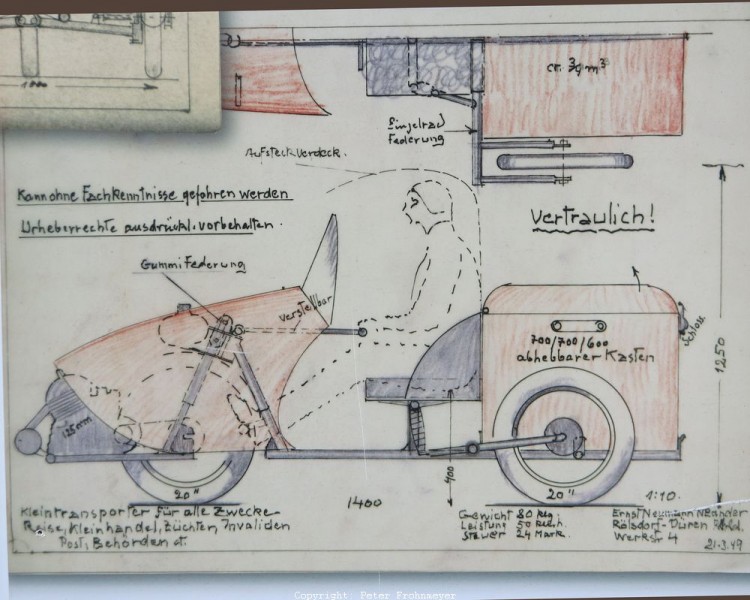 ca. 3qm³
Einzelrad
Federung
Aufsteckverdeck.
Kann ohne Fachkenntnisse gefahren werden
Urheberrechte ausdrückl. vorbehalten.
Vertraulich!
Gummi Federung
verstellbar
Schloss
700/700/600
abhebbarer Kasten
1250
125 mm
400
20"
1400
20"
1:10.
Kleintransporter für alle Zwecke
Reise, Kleinhandel, Züchter, Invaliden
Post, Behörden et.
Gewicht 80 kg.
Leistung 50 klm. h.
Steuer 24 Mark.
Ernst Neumann Neander
Rölsdorf-Düren Rhld.
Werkstr 4
21.3.49
Copyright: Peter Frohnmeyer